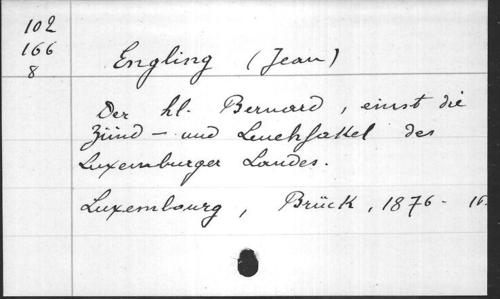 102
166
8
Engling (Jean)
Der hl. Bernard, einst die
Zünd - und Leuchfackel des
Luxemburger Landes.
Luxembourg, Brück, 1876 - 16